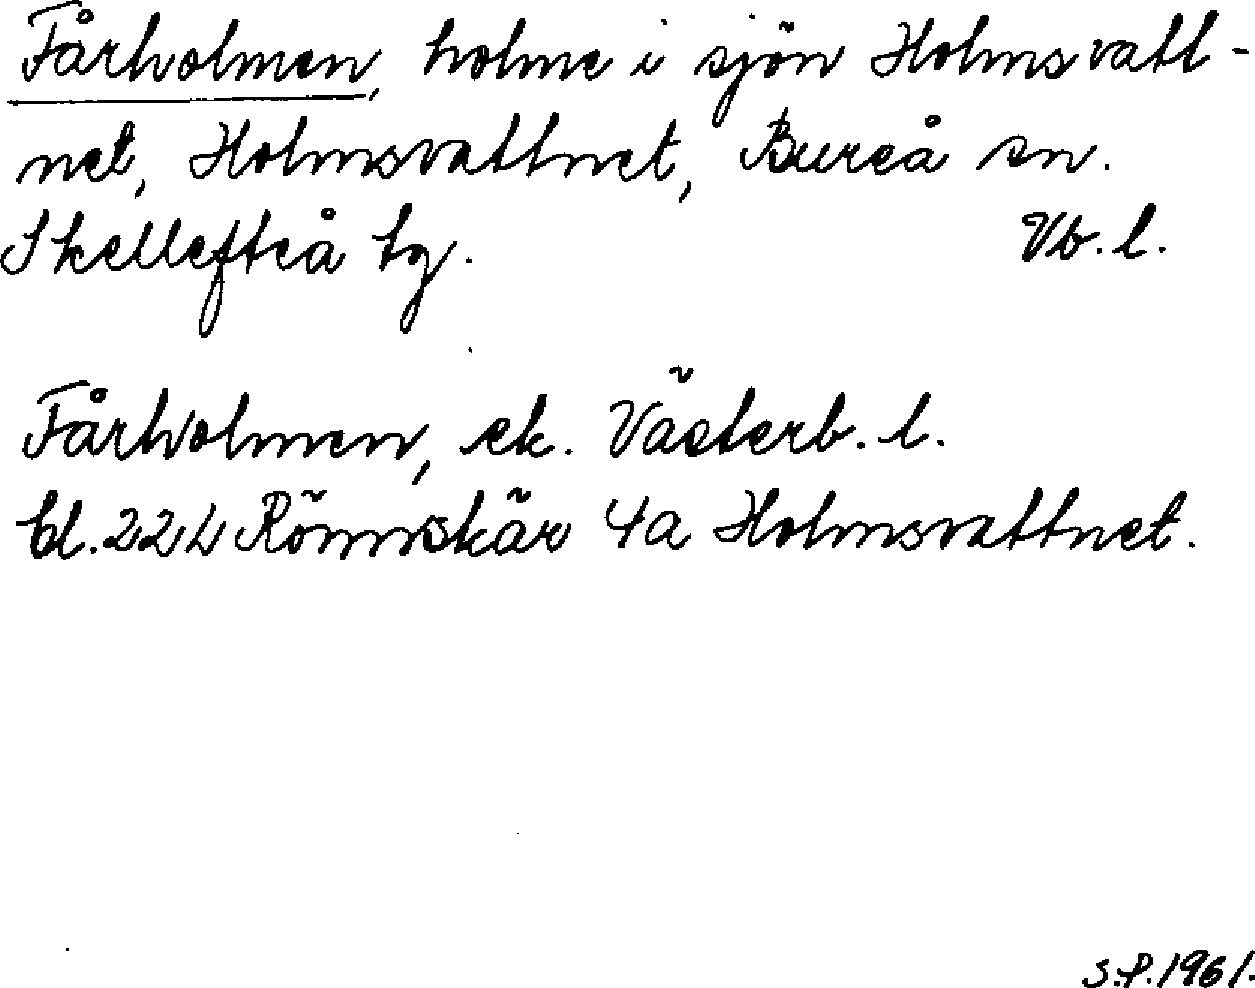 Fårholmen, holme i sjön Holmsvatt-
net, Holmsvattnet, Bureå sn.
Skellefteå tg. Vb. l.
Fårholmen, ek. Västerb. l.
bl. 22L Rönnskär 4a Holmsvattnet.
S.P. 1961.